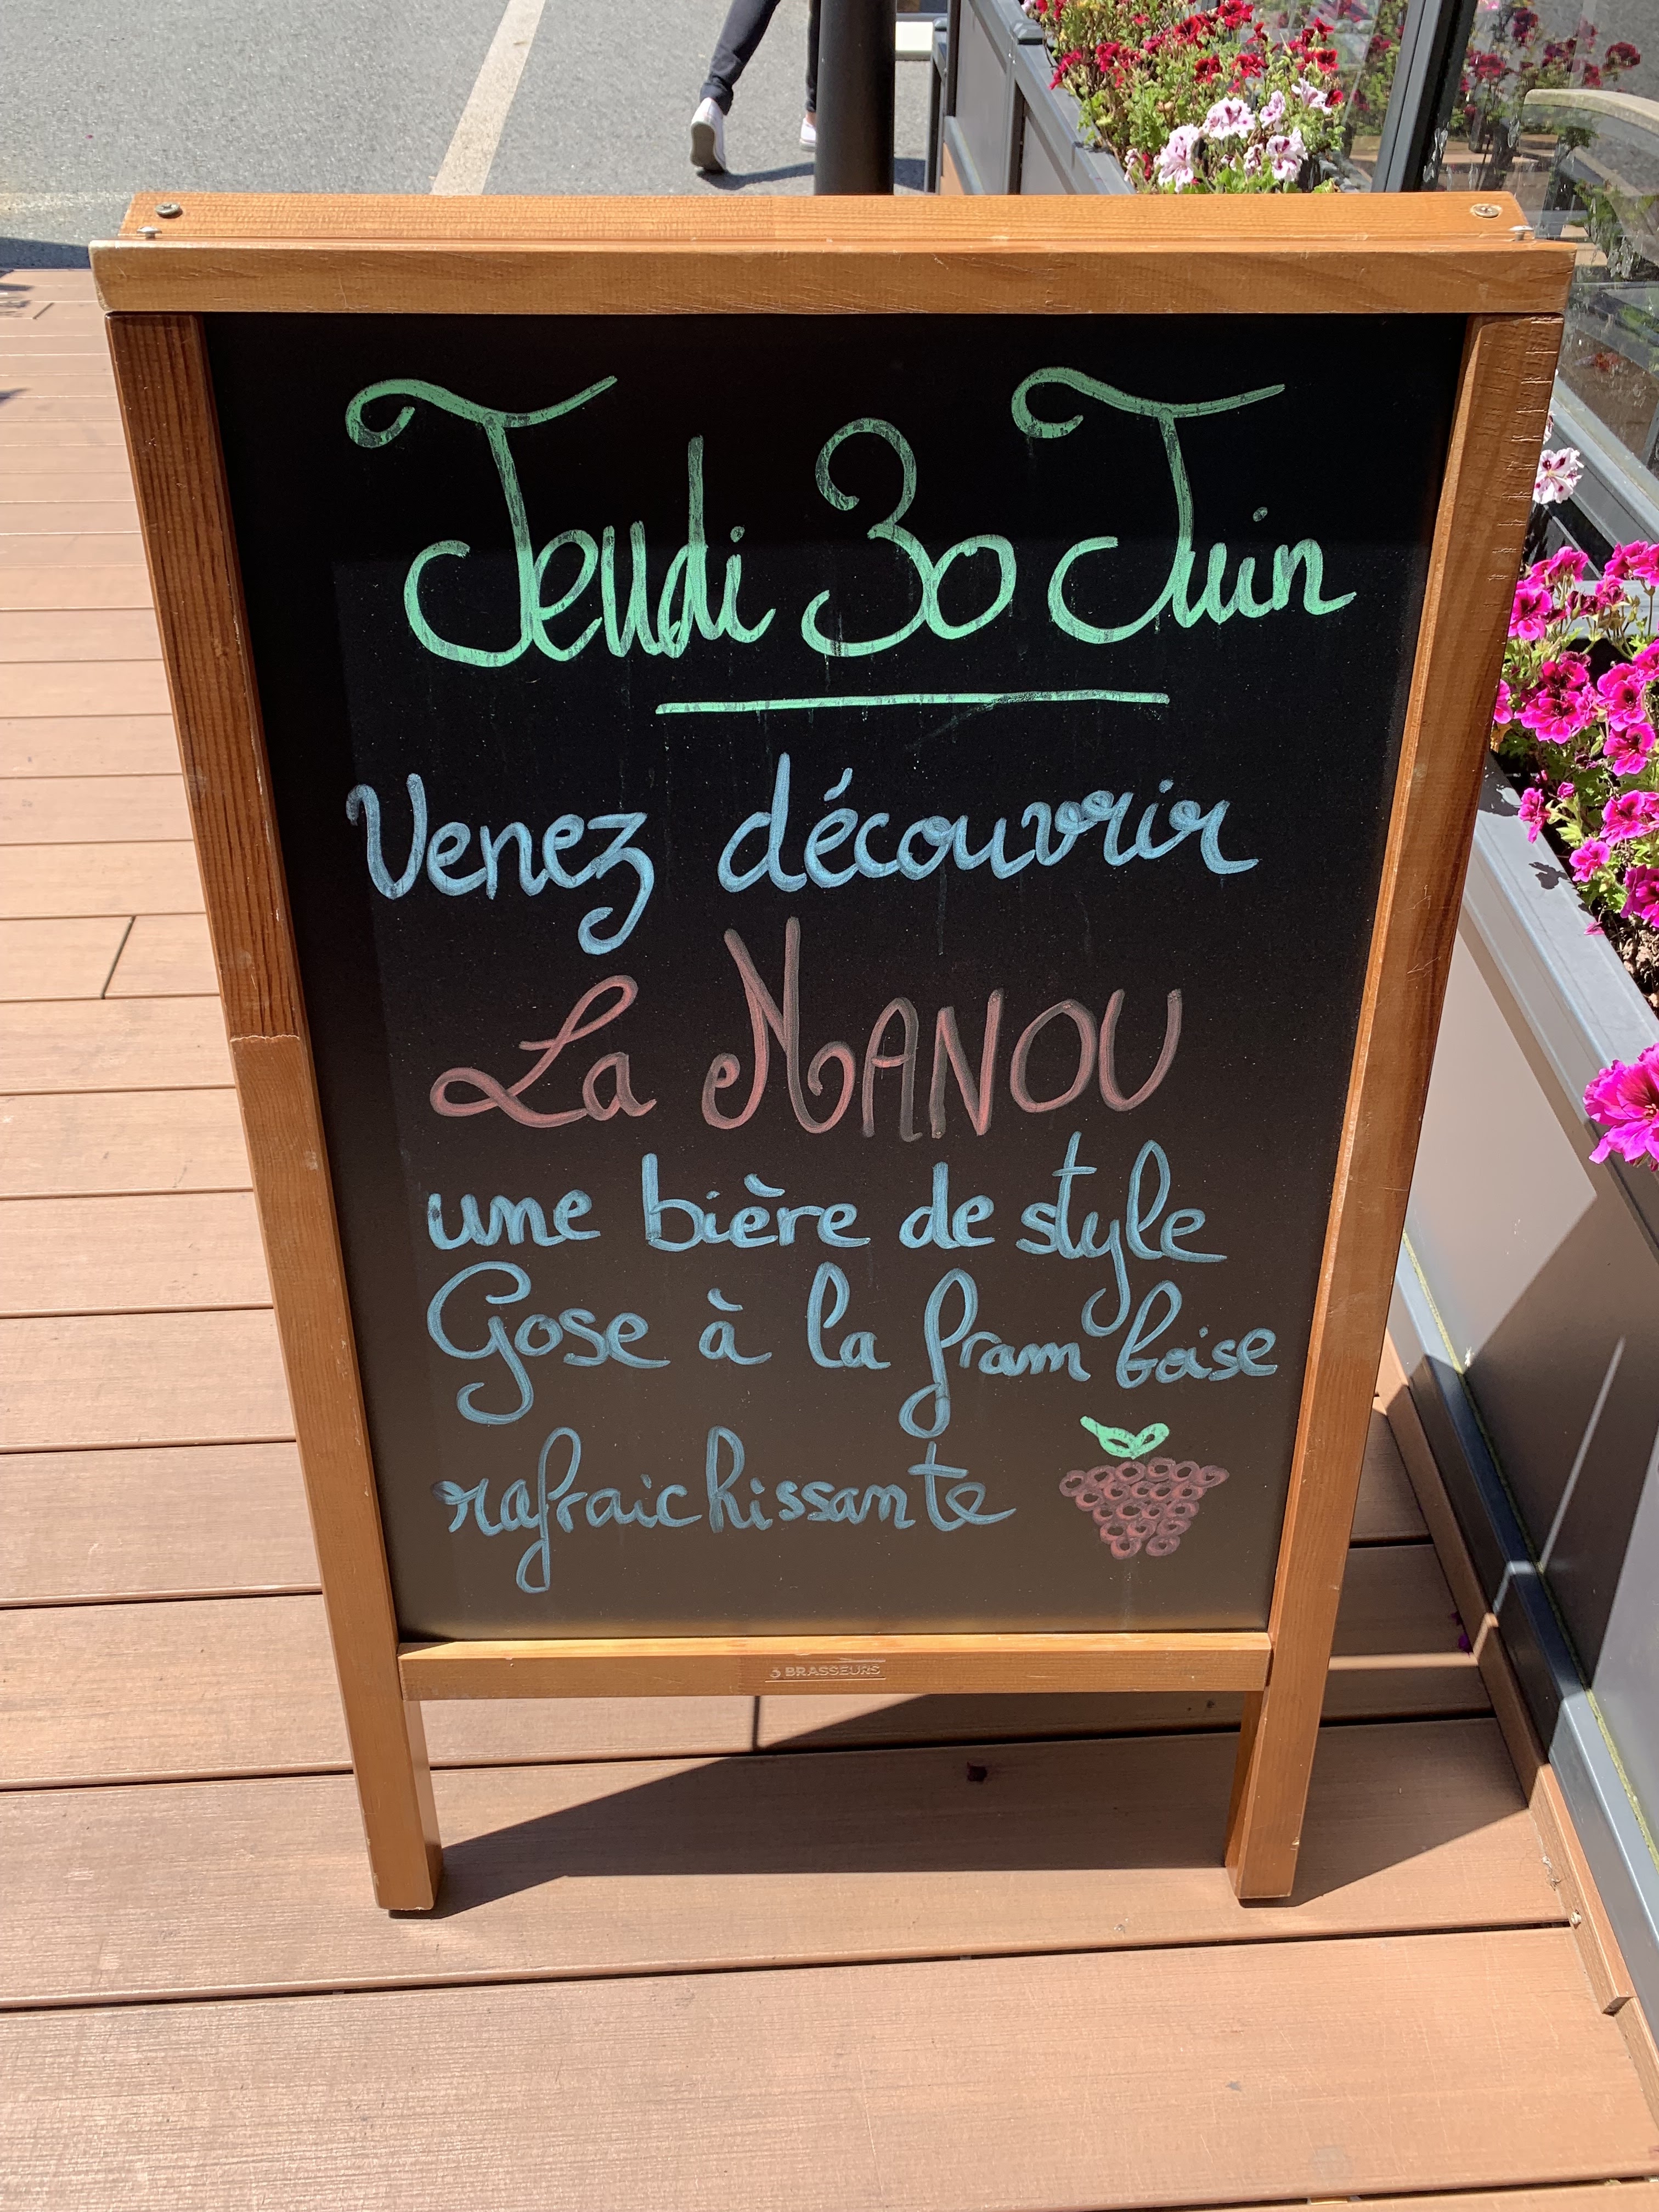 Jeudi 30 Juin
Venez découvrir
La MANOU
une bière de style
Gose à la framboise
rafraichissante
3 BRASSEURS